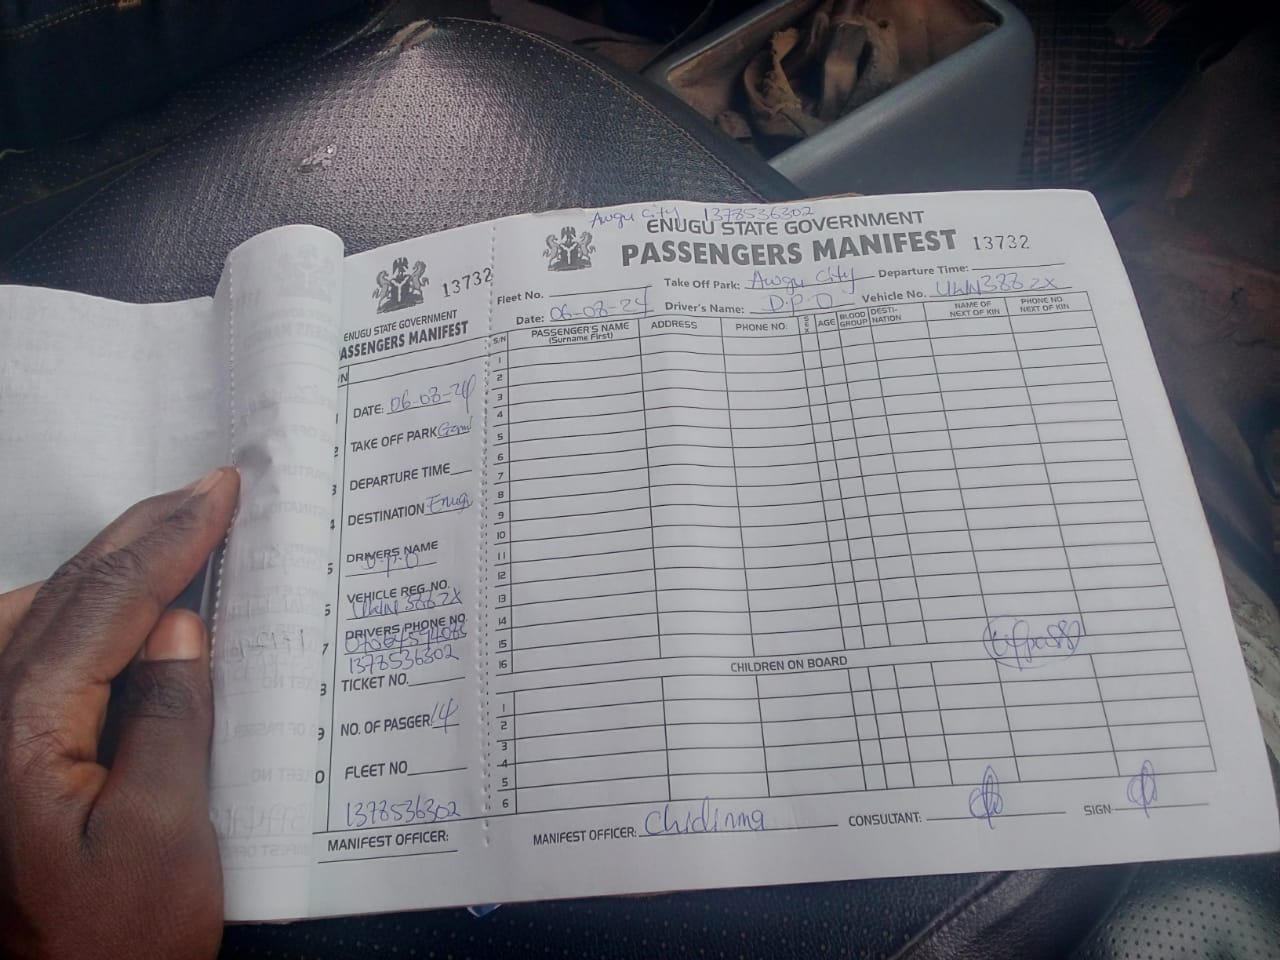 13732
ENUGU STATE GOVERNMENT
PASSENGERS MANIFEST
DATE: 06-08-24
TAKE OFF PARK
DEPARTURE TIME
DESTINATION Enugu
DRIVERS NAME
D.P.O
VEHICLE REG. NO.
UWN 388 ZX
DRIVERS PHONE NO
1378536302
TICKET NO.
NO. OF PASGER 14
FLEET NO
1378536302
MANIFEST OFFICER:
Awgu City 1378536302
ENUGU STATE GOVERNMENT
PASSENGERS MANIFEST 13732
Fleet No. Take Off Park: Awgu City Departure Time:
Date: 06-08-24 Driver's Name: D.P.O Vehicle No. UWN 388 ZX
S/N PASSENGER'S NAME (Surname First) ADDRESS PHONE NO. SEX AGE BLOOD GROUP DESTI-NATION NAME OF NEXT OF KIN PHONE NO. NEXT OF KIN
1
2
3
4
5
6
7
8
9
10
11
12
13
14
15
16
CHILDREN ON BOARD
1
2
3
4
5
6
MANIFEST OFFICER: Chidinma CONSULTANT: SIGN